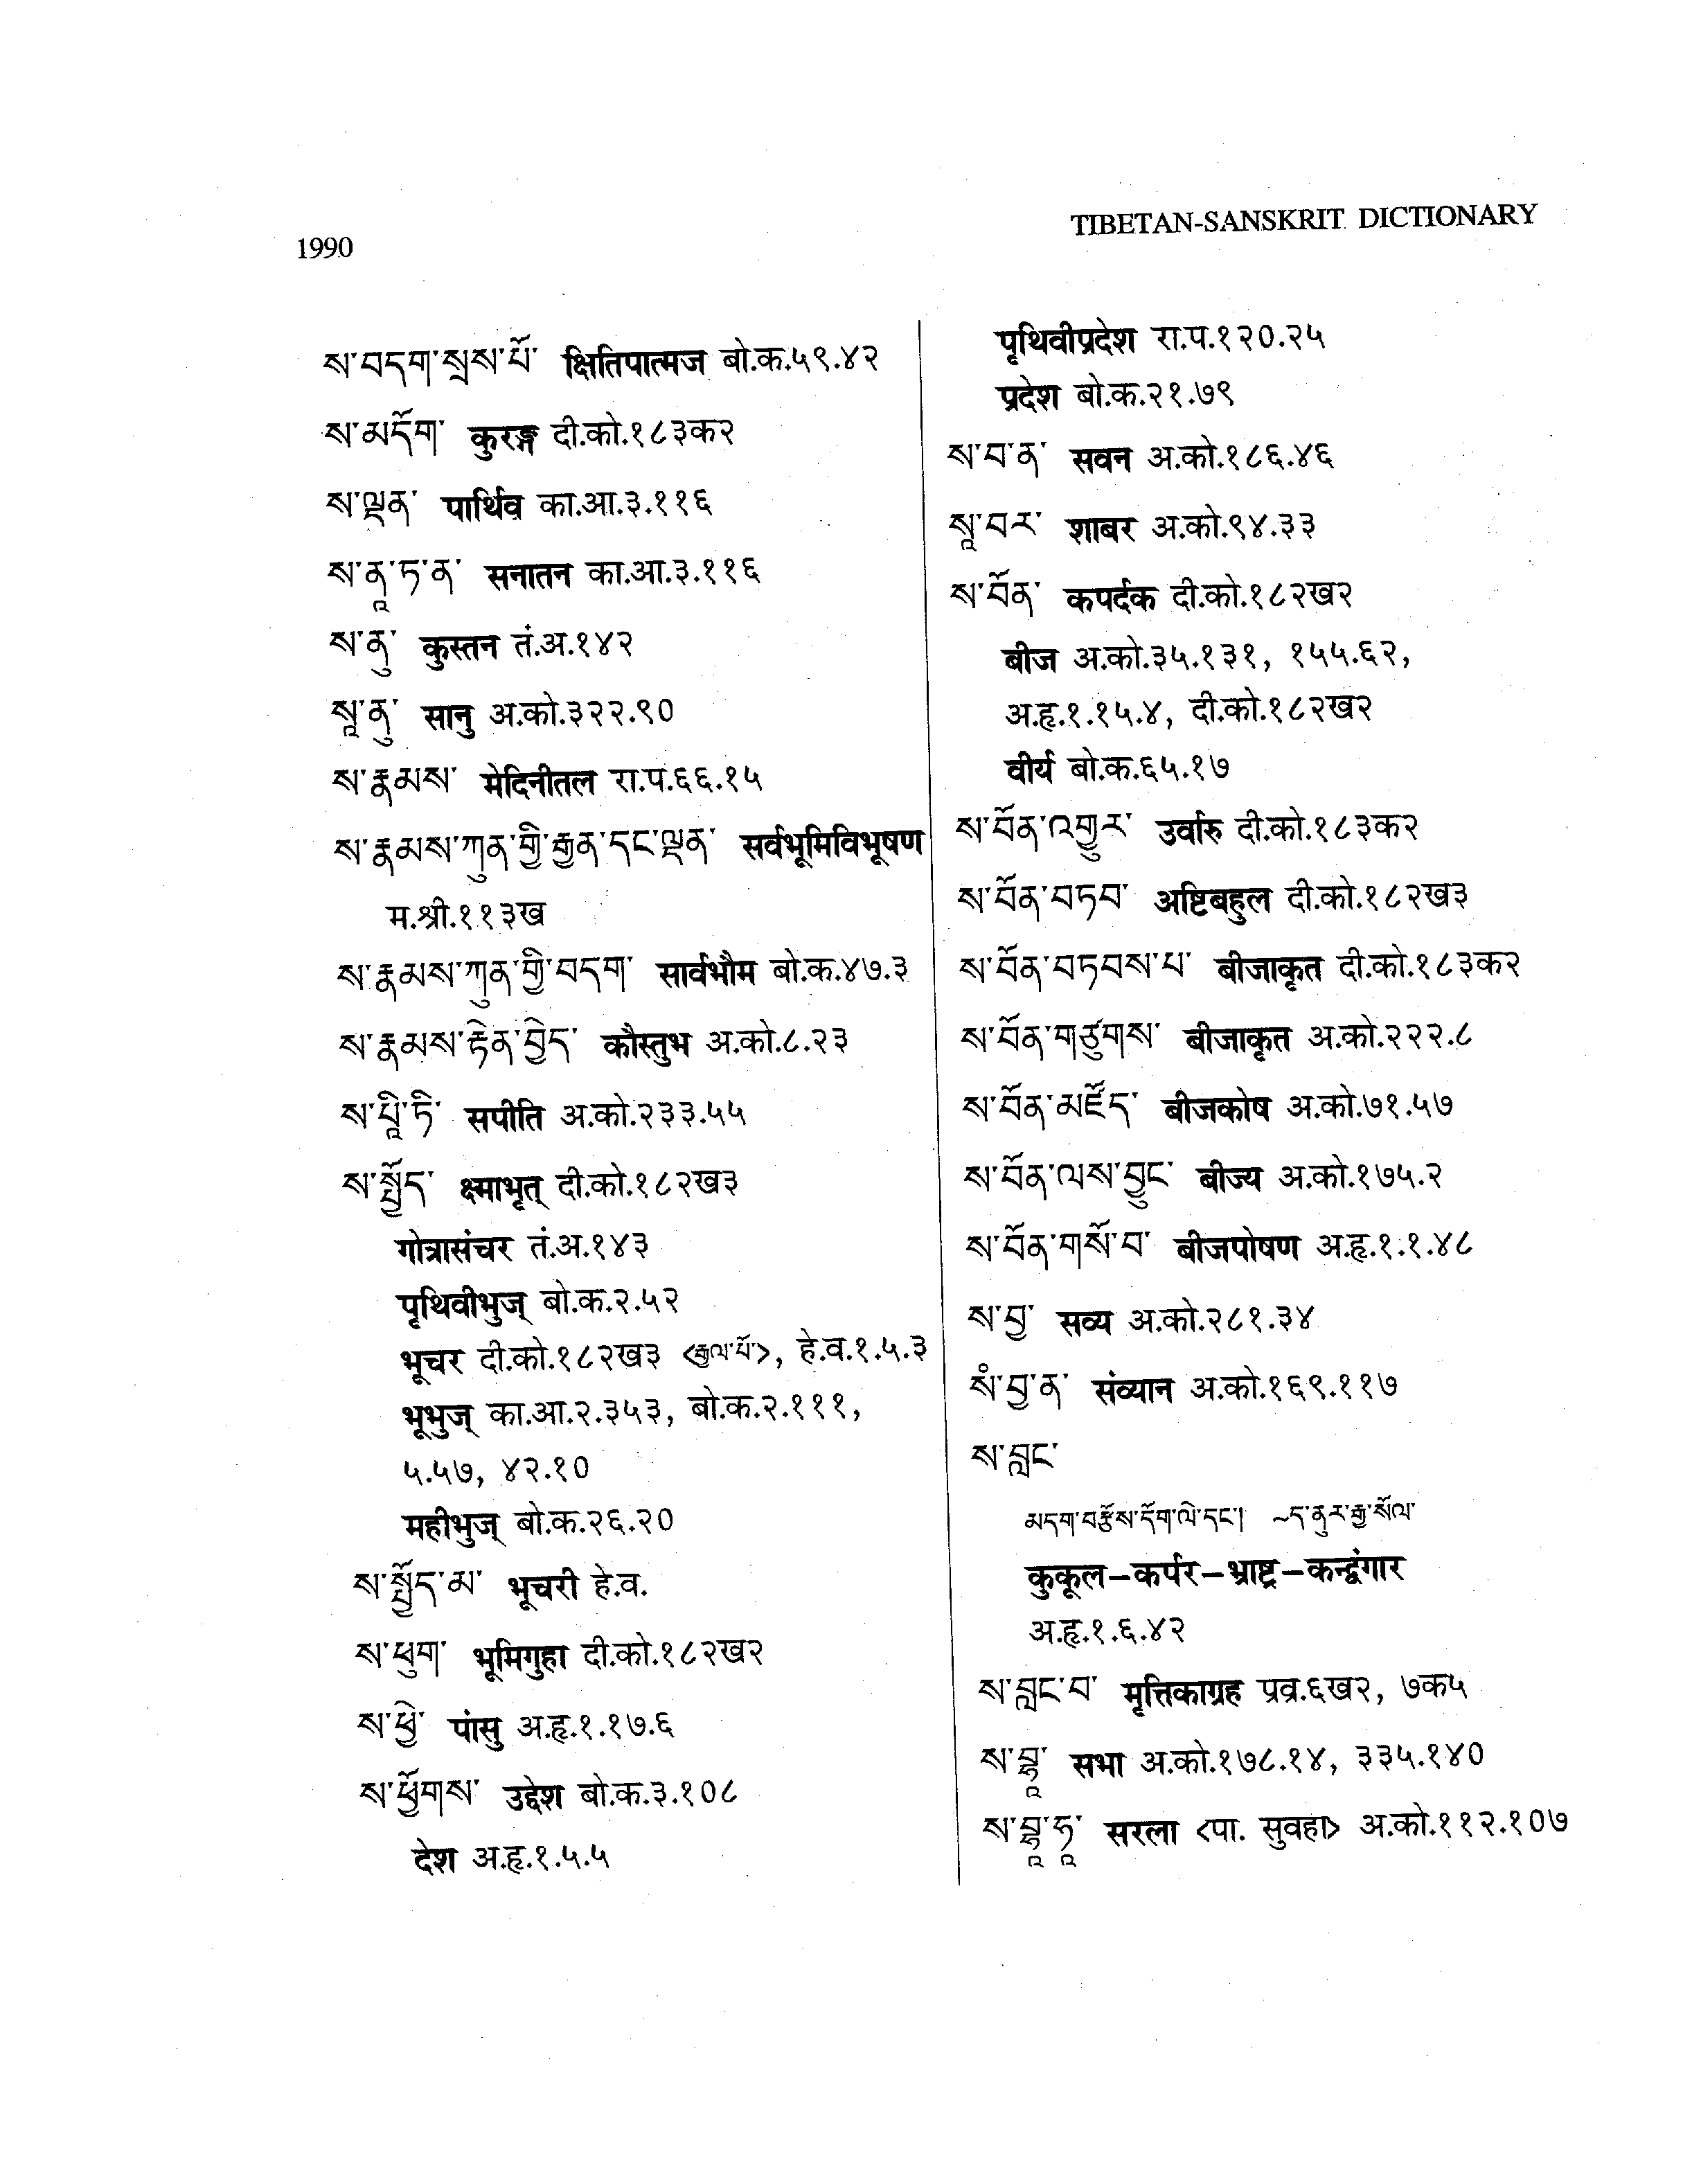 1990
TIBETAN-SANSKRIT DICTIONARY
ས་བདག་སྲས་པོ་ क्षितिपात्मज बो.क.५९.४२
ས་མདོག་ कुरङ्ग दी.को.१८३क२
ས་ལྡན་ पार्थिव का.आ.३.११६
ས་ནཱ་ཏ་ན་ सनातन का.आ.३.११६
ས་ནུ་ कुस्तन तं.अ.१४२
སཱ་ནུ་ सानु अ.को.३२२.९०
ས་རྣམས་ मेदिनीतल रा.प.६६.१५
ས་རྣམས་ཀུན་གྱི་རྒྱན་དང་ལྡན་ सर्वभूमिविभूषण
म.श्री.११३ख
ས་རྣམས་ཀུན་གྱི་བདག་ सार्वभौम बो.क.४७.३
ས་རྣམས་རྟེན་བྱེད་ कौस्तुभ अ.को.८.२३
ས་པཱི་ཏི་ सपीति अ.को.२३३.५५
ས་སྤྱོད་ क्ष्माभृत् दी.को.१८२ख३
गोत्रासंचर तं.अ.१४३
पृथिवीभुज् बो.क.२.५२
भूचर दी.को.१८२ख३ <རྒྱལ་པོ་>, हे.व.१.५.३
भूभुज् का.आ.२.३५३, बो.क.२.१११,
५.५७, ४२.१०
महीभुज् बो.क.२६.२०
ས་སྤྱོད་མ་ भूचरी हे.व.
ས་ཕུག་ भूमिगुहा दी.को.१८२ख२
ས་ཕྱེ་ पांसु अ.हृ.१.१७.६
ས་ཕྱོགས་ उद्देश बो.क.३.१०८
देश अ.हृ.१.५.५
पृथिवीप्रदेश रा.प.१२०.२५
प्रदेश बो.क.२१.७९
ས་བ་ན་ सवन अ.को.१८६.४६
སཱ་བར་ शाबर अ.को.९४.३३
ས་བོན་ कपर्दक दी.को.१८२ख२
बीज अ.को.३५.१३१, १५५.६२,
अ.हृ.१.१५.४, दी.को.१८२ख२
वीर्य बो.क.६५.१७
ས་བོན་འགྱུར་ उर्वारु दी.को.१८३क२
ས་བོན་བཏབ་ अष्टिबहुल दी.को.१८२ख३
ས་བོན་བཏབས་པ་ बीजाकृत दी.को.१८३क२
ས་བོན་གཙུགས་ बीजाकृत अ.को.२२२.८
ས་བོན་མཛོད་ बीजकोष अ.को.७१.५७
ས་བོན་ལས་བྱུང་ बीज्य अ.को.१७५.२
ས་བོན་གསོ་བ་ बीजपोषण अ.हृ.१.१.४८
ས་བྱ་ सव्य अ.को.२८१.३४
སཾ་བྱ་ན་ संव्यान अ.को.१६९.११७
ས་བླང་
མདག་བརྩོས་དོག་ལེ་དང་། ~ད་ནུར་རྒྱ་སོལ་
कुकूल–कर्पर–भ्राष्ट्र–कन्द्वंगार
अ.हृ.१.६.४२
ས་བླང་བ་ मृत्तिकाग्रह प्रव्र.६ख२, ७क५
ས་བྷཱ་ सभा अ.को.१७८.१४, ३३५.१४०
ས་བྷཱ་ཧཱ་ सरला <पा. सुवहा> अ.को.११२.१०७